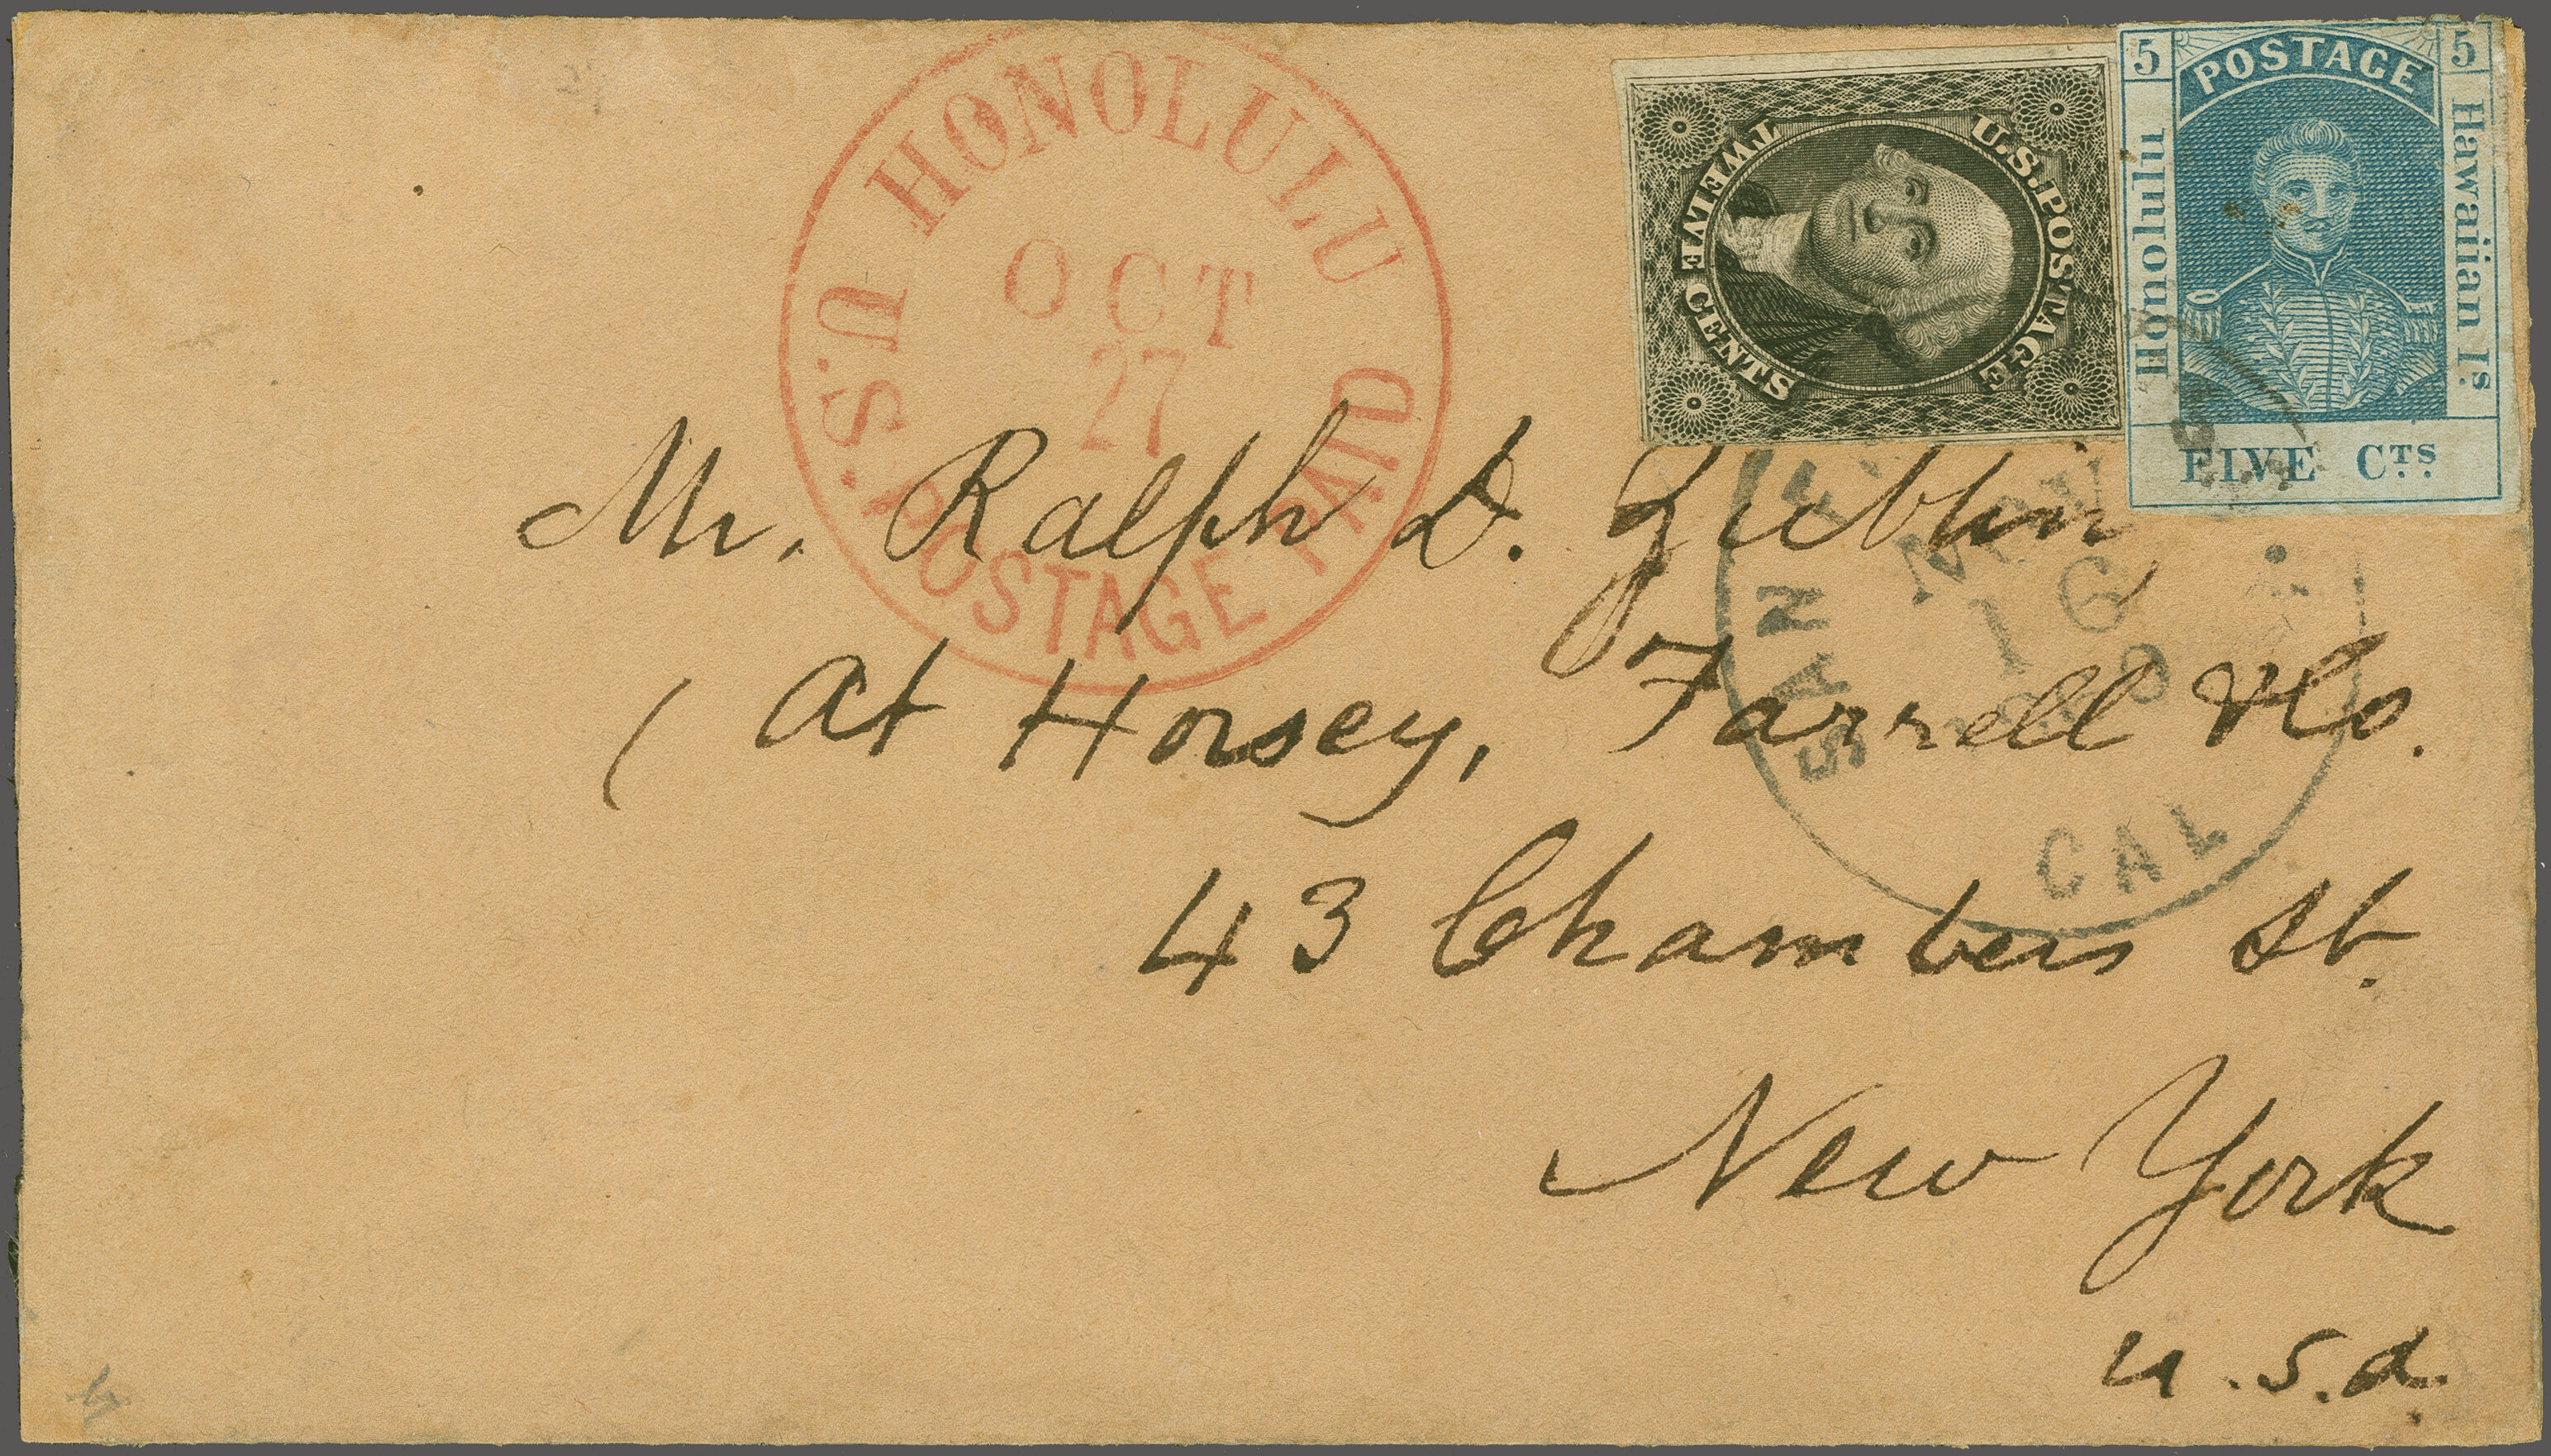 HONOLULU
U.S. POSTAGE PAID
OCT
27
U.S. POSTAGE
TWELVE CENTS
5 POSTAGE 5
Honolulu
Hawaiian Is.
FIVE CTS.
SAN
CAL
NOV
16
Mr. Ralph D.
(At Horsey, Farrell & Co.
43 Chambers St.
New York
U.S.A.